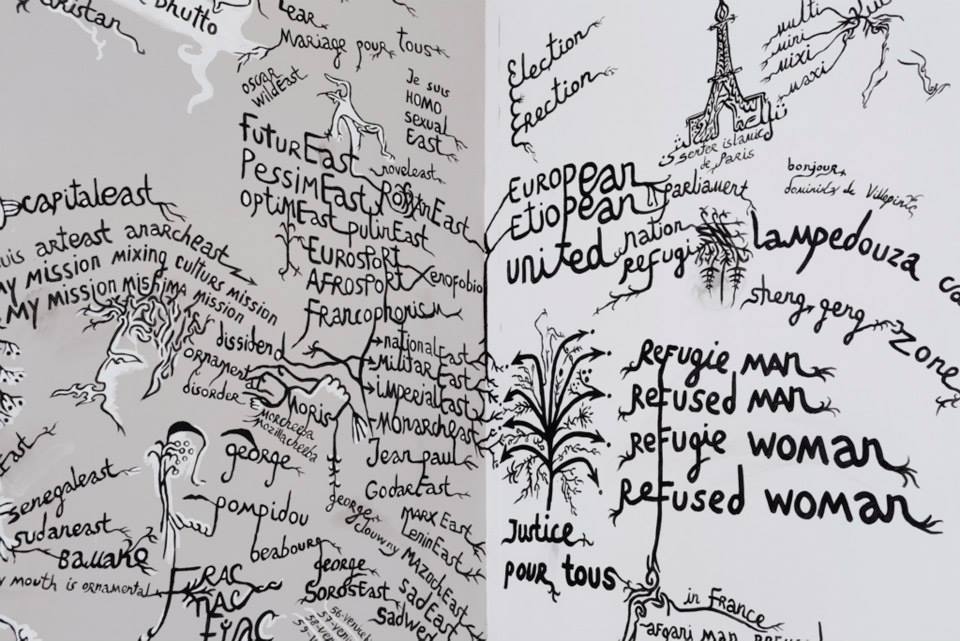 Bhutto
Lear
Mariage pour tous
oscar
wildEast
Je suis
HOMO
sexual
East
FuturEast
PessimEast
optiMEast
noveleast
pulinEast
EurospoRt
AFROSPORT
Francophonism
xenofobio
capitaleast
arteast anarcheast
MY mission mixing cultures mission
MY mission mishima mission
dissidend
ornamental
disorder
Moris
morcheeba
mozillacheeba
nationalEast
MilitarEast
imperialEast
Monarcheast
Jean paul
GodarEast
george
pompidou
beabourg
george
clouwny
george
SorosEast
MARX East
LeninEast
MAZochEast
SadEast
Sadwed
senegaleast
sudaneast
mouth is ornamental
FRAC
NAC
FiAC
56-venice
57-venice
58-venice
59-
Election
Erection
multi
mini
mixi
maxi
senter islamic
de Paris
European
Etiopean
parliament
united nation
refugi
bonjour
dominik de Villepin
Lampedouza
sheng geng Zone
REFugie MAN
REFused MAN
REFugie WOMAN
REFused WOMAN
Justice
pour tous
in France
afgani man